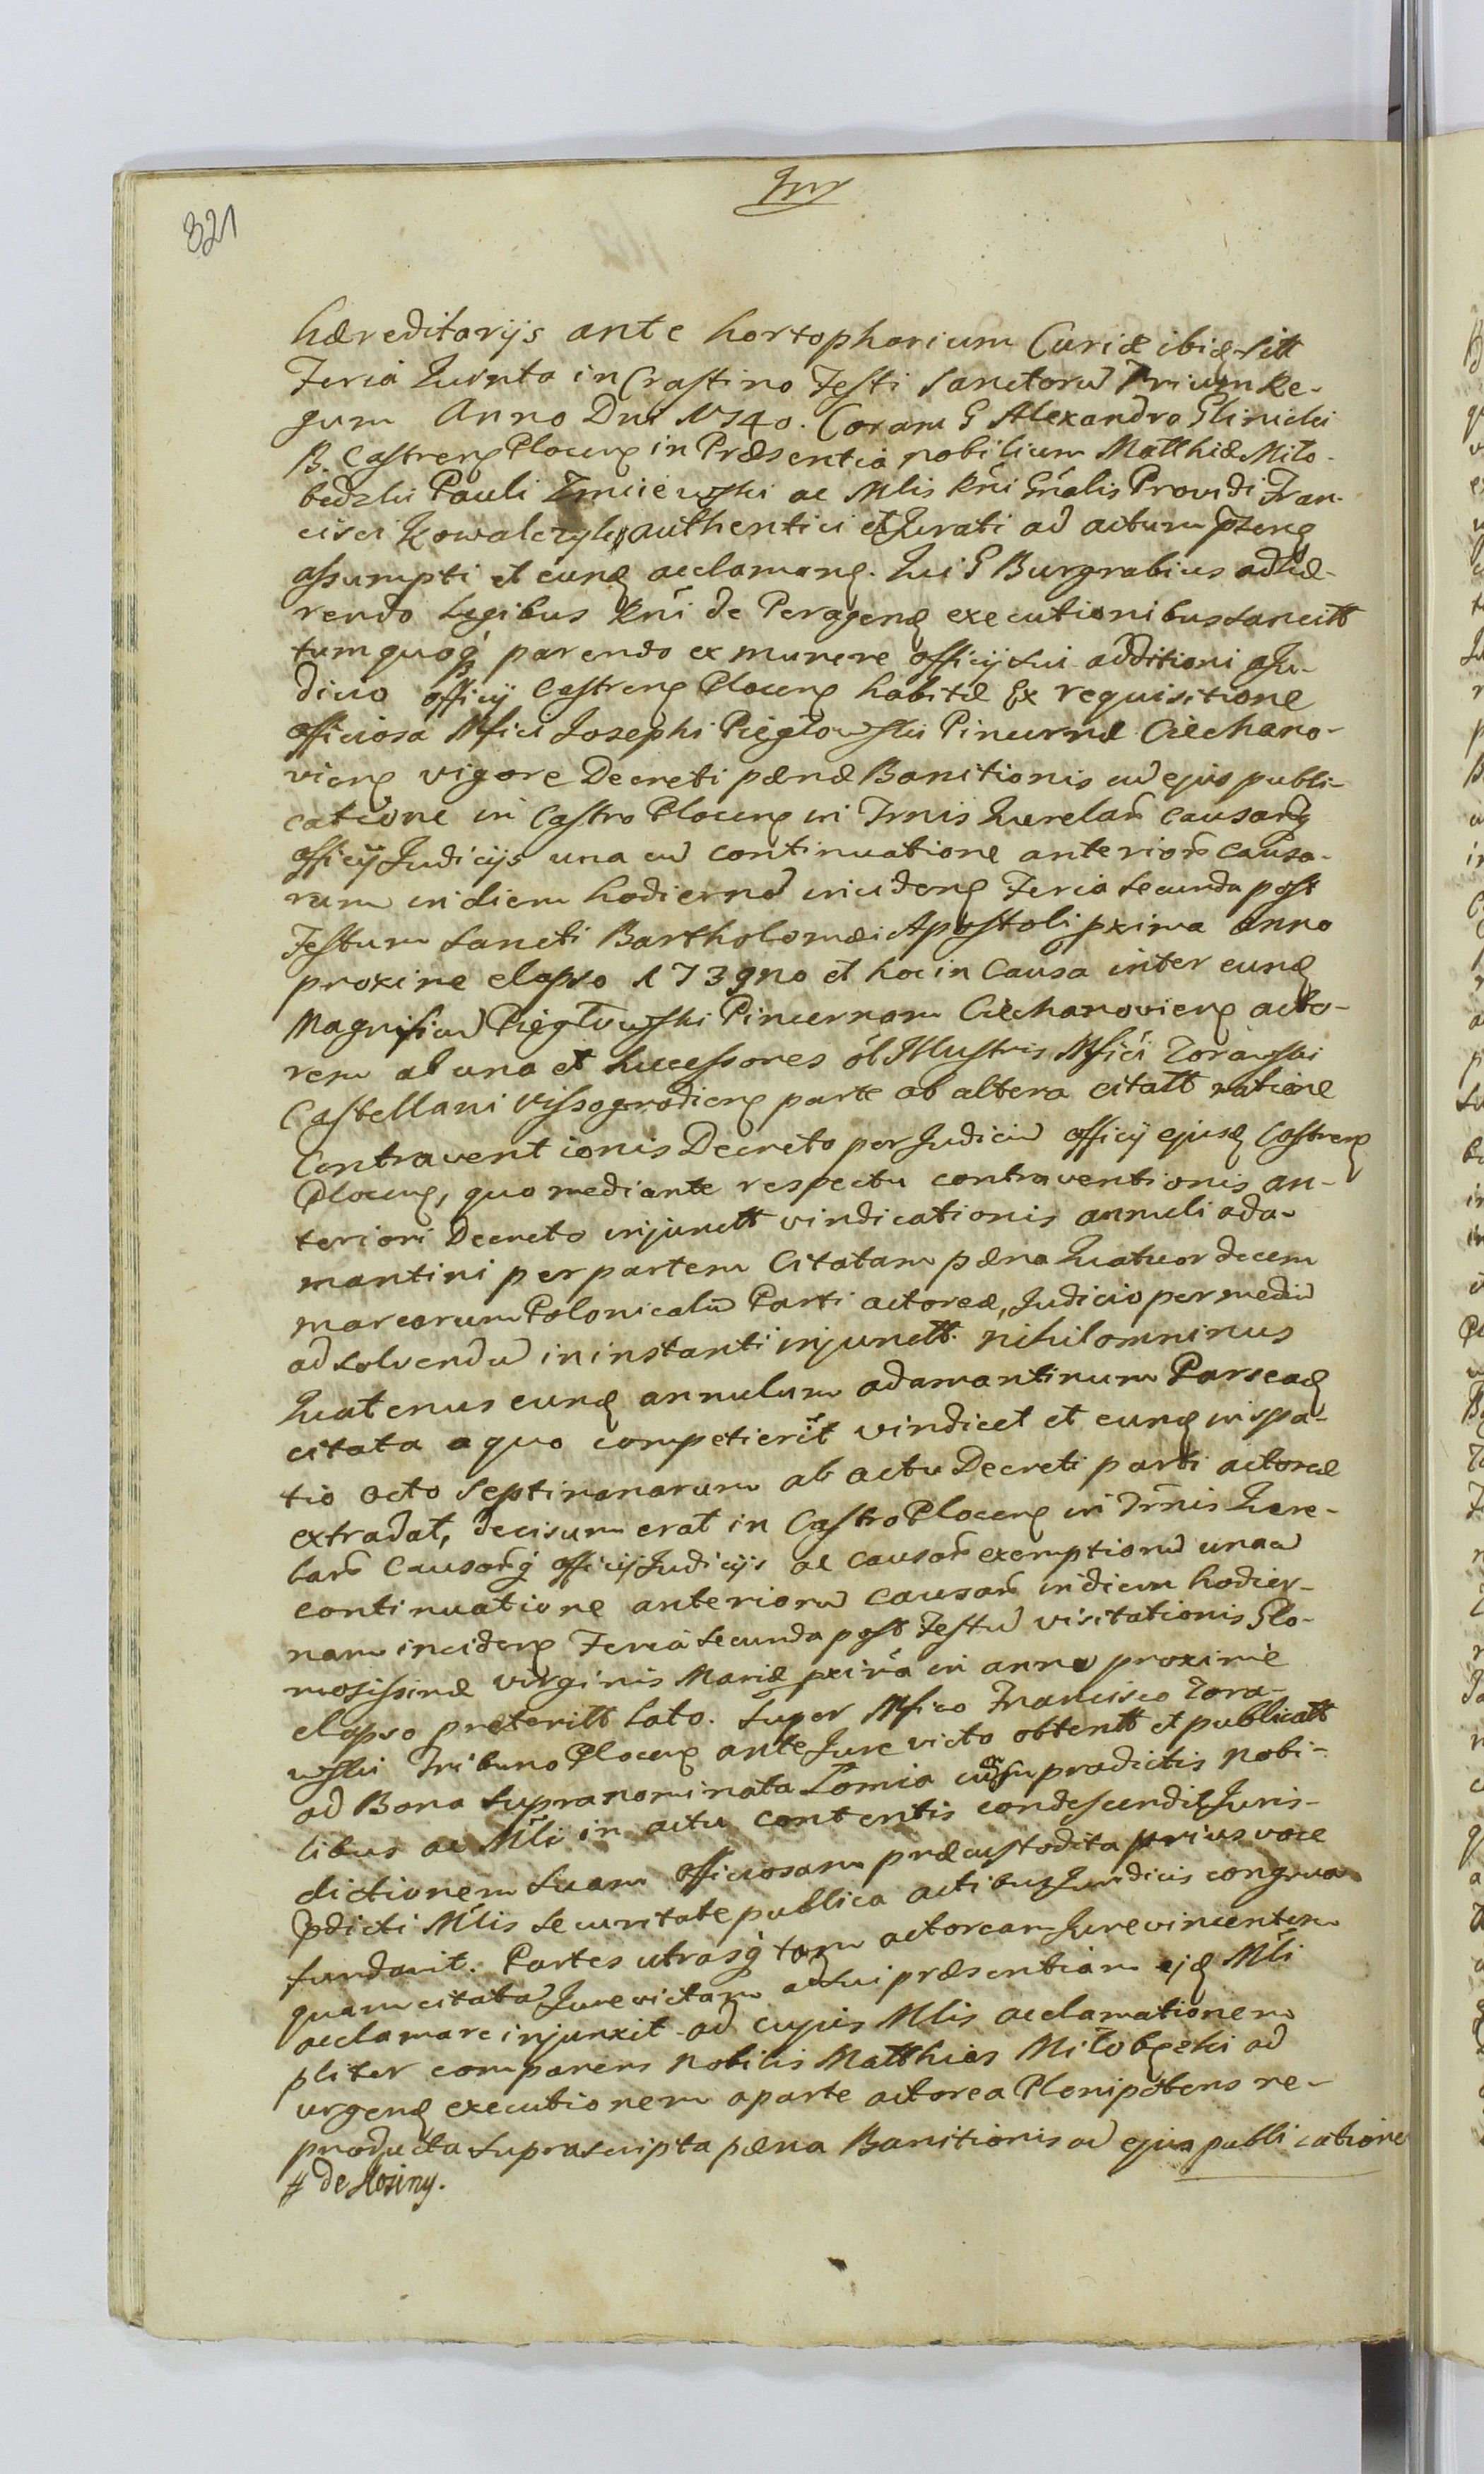 321
hæreditarijs ante hortopharium Curiæ ibid sitt
Feria Quinta in Crastino Festi Sanctorū Trium Re-
gum Anno Dni 1740. Coram G Alexandro Glinicki
B. Castren Plocen in Præsentia nobilium Matthiæ Miło-
bedzki Pauli Zmiiewski ac Mlis Rni Gnalis Providi Fran-
cisci Kowalczyk # authentici et Jurati ad actum pnten
assumpti et eund acclaman. Qui G Burgrabius adhæ-
rendo Legibus Rni de Peragend executionibus sancitt
tum quoq parendo ex munere officij sui additioni aju-
dicio officij Castren Plocen habitæ Ex requisitione
officiosa Mfici Josephi Piegłowski Pincernæ Ciechano-
vien vigore Decreti pænæ Banitionis cū ejus publi-
catione in Castro Plocen in Trnis Querelar causarq
officij Judicijs una cū continuatione anterior causa-
rum in diem hodiernā inciden Feria secunda post
Festum Sancti Bartholomæi Apostoli pxima anno
proxime elapso 1739no et hoc in Causa inter eund
Magnificū Piegłowski Pincernam Ciechanovien acto-
rem ab una et Successores ol Illustris Mfici Zorawski
Castellani Vissogrodien parte ab altera citatt ratione
Contraventionis Decreto per Judiciū officij ejusd Castren
Plocen, quo mediante respectu contraventionis an-
teriori Decreto injunctt vindicationis annuli ada-
mantini per partem Citatam pæna Quatuordecem
marcarum Polonicaliū Parti actoreæ, Judicio per mediū
ad solvendū in instanti injunctt. nihilominus
Quatenus eund annulum adamantinum Pars ead
citata a quo competierit vindicet et eund in spa-
tio octo septimanarum ab actu Decreti parti actoreæ
extradat, decisum erat in Castro Plocen in Trnis Quere-
lar Causarq officij Judicijs ac causar exemptionū una cū
continuatione anteriorū causar in diem hodier-
nam inciden Feria secunda post Festū visitationis Glo-
riosissimæ virginis Mariæ pxima in anno proxime
elapso preteritt lato. Super Mfico Francisco Zora-
wski Tribuno Plocen ante Jure victo obtentt et publicatt
ad Bona supranominata Łomia cū supradictis nobi-
libus ac Mli in actu contentis condescendit Juris-
dictionem suam officiosam præcustodita prius voce
pdicti Mlis securitate publica actibus Juridicis congrua
fundavit. Partes utrasq tam actoream Jurevincentem
quam citatā Jurevictam ad sui præsentiam ejd Mli
acclamare injunxit ad cujus Mlis acclamationem
pliter comparens Nobilis Matthias Miłobęzki ad
urgend executionem a parte actorea Plenipotens re-
producta suprascripta pæna Banitionis cū ejus publicatione
# de Mosiny.